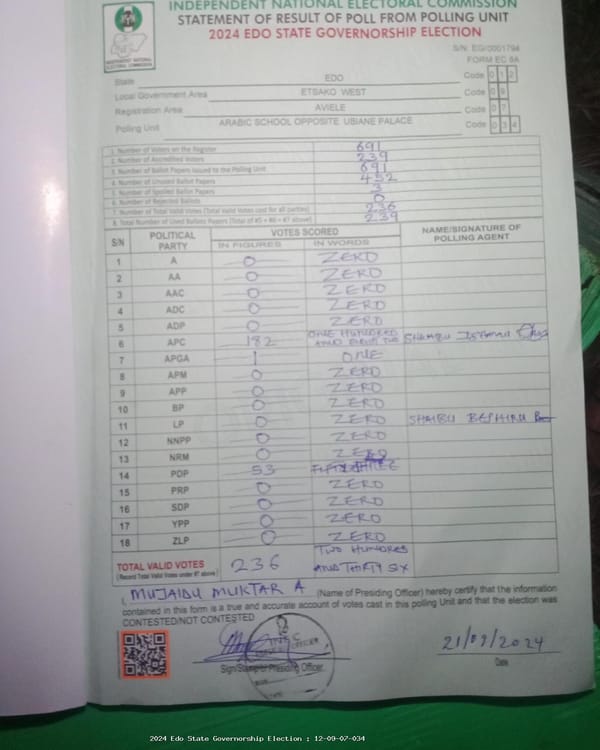 INDEPENDENT NATIONAL ELECTORAL COMMISSION
STATEMENT OF RESULT OF POLL FROM POLLING UNIT
2024 EDO STATE GOVERNORSHIP ELECTION
S/N: EG/0001794
FORM EC 8A
State EDO Code 0 1 2
Local Government Area ETSAKO WEST Code 0 9
Registration Area AVIELE Code 0 7
Polling Unit ARABIC SCHOOL OPPOSITE UBIANE PALACE Code 0 3 4
1. Number of Voters on the Register 691
2. Number of Accredited Voters 239
3. Number of Ballot Papers Issued to the Polling Unit 691
4. Number of Unused Ballot Papers 452
5. Number of Spoiled Ballot Papers 3
6. Number of Rejected Ballots 0
7. Number of Total Valid Votes (Total Valid Votes cast for all parties) 236
8. Total Number of Used Ballot Papers (Total of #5 + #6 + #7 above) 239
S/N POLITICAL PARTY VOTES SCORED NAME/SIGNATURE OF POLLING AGENT
IN FIGURES IN WORDS
1 A 0 ZERO
2 AA 0 ZERO
3 AAC 0 ZERO
4 ADC 0 ZERO
5 ADP 0 ZERO
6 APC 182 ONE HUNDRED AND EIGHTY TWO SHAIBU
7 APGA 1 ONE
8 APM 0 ZERO
9 APP 0 ZERO
10 BP 0 ZERO
11 LP 0 ZERO SHAIBU
12 NNPP 0 ZERO
13 NRM 0 ZERO
14 PDP 53 FIFTY THREE
15 PRP 0 ZERO
16 SDP 0 ZERO
17 YPP 0 ZERO
18 ZLP 0 ZERO
TOTAL VALID VOTES 236 TWO HUNDRED AND THIRTY SIX
(Record Total Valid Votes under #7 above)
I, MUJAIDU MUKTAR A (Name of Presiding Officer) hereby certify that the information
contained in this form is a true and accurate account of votes cast in this polling Unit and that the election was
CONTESTED/NOT CONTESTED
Sign/Stamp of Presiding Officer
21/09/2024
Date
2024 Edo State Governorship Election : 12-09-07-034